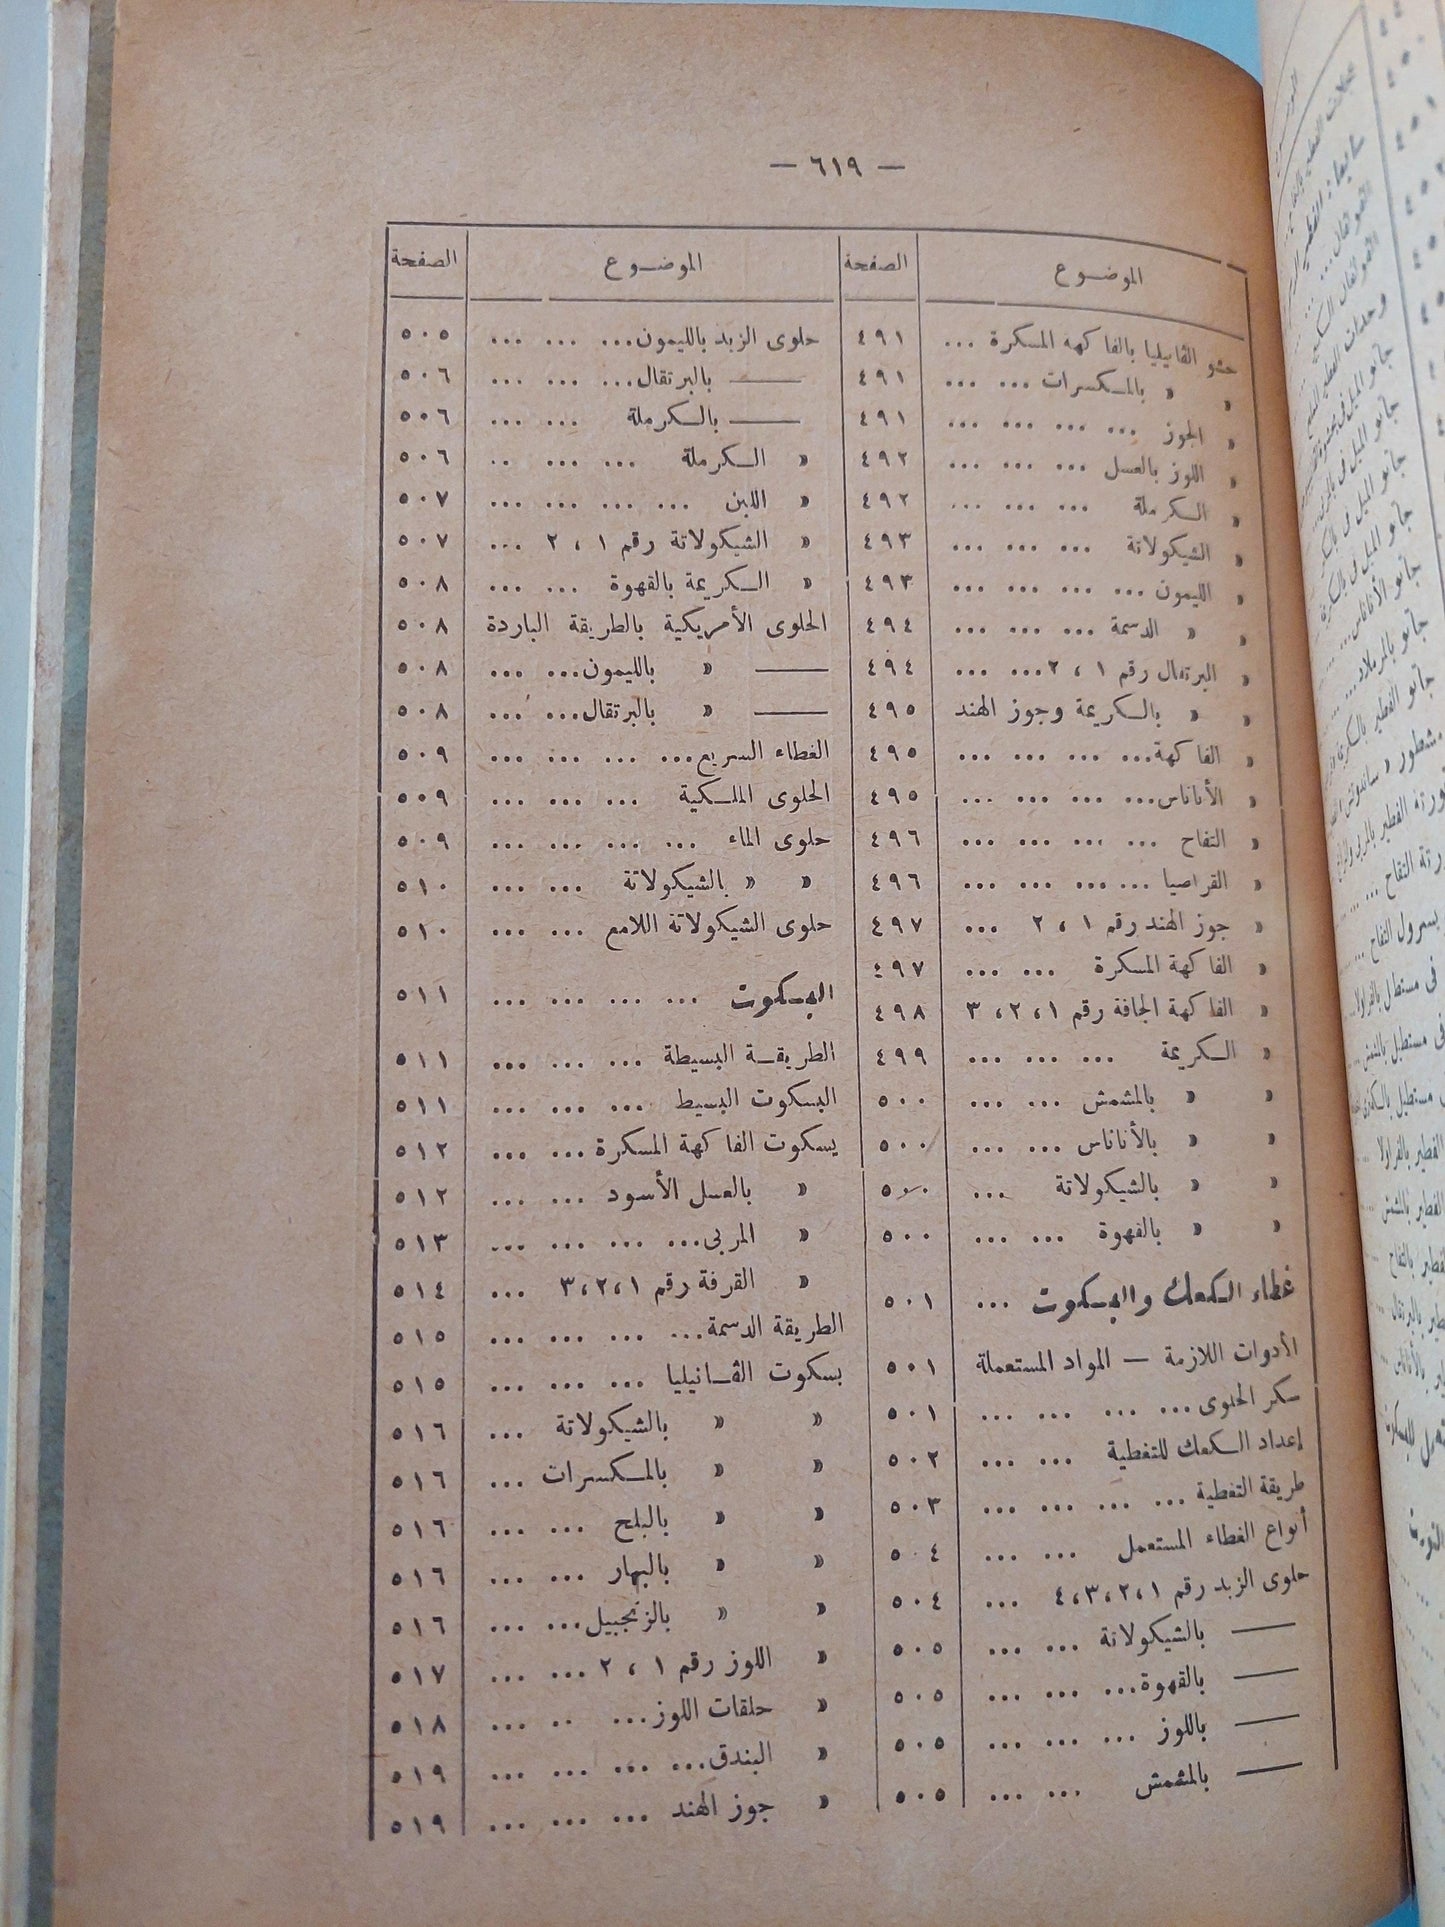 — ٦١٩ —
الموضـوع الصفحة
حشو الڤانيليا بالفاكهه المسكرة ... ٤٩١
» » بالمكسرات ... ... ٤٩١
» الجوز ... ... ... ... ٤٩١
» اللوز بالعسل ... ... ... ٤٩٢
» الكرملة ... ... ... ٤٩٢
» الشيكولاتة ... ... ... ٤٩٣
» الليمون ... ... ... ... ٤٩٣
» » الدسمة ... ... ... ٤٩٤
» البرتقال رقم ١ ، ٢ ... ... ٤٩٤
» » بالكريمة وجوز الهند ٤٩٥
» الفاكهة ... ... ... ... ٤٩٥
» الأناناس ... ... ... ... ٤٩٥
» التفاح ... ... ... ... ٤٩٦
» القراصيا ... ... ... ... ٤٩٦
» جوز الهند رقم ١ ، ٢ ... ٤٩٧
» الفاكهة المسكرة ... ... ٤٩٧
» الفاكهة الجافة رقم ١ ، ٢ ، ٣ ٤٩٨
» الكريمة ... ... ... ٤٩٩
» » بالمشمش ... ... ٥٠٠
» » بالأناناس ... ... ٥٠٠
» » بالشيكولاتة ... ٥٠٠
» » بالقهوة ... ... ٥٠٠
غطاء الكعك والبسكوت ... ٥٠١
الأدوات اللازمة — المواد المستعملة ٥٠١
سكر الحلوى ... ... ... ... ٥٠١
إعداد الكعك للتغطية ... ... ٥٠٢
طريقة التغطية ... ... ... ... ٥٠٣
أنواع الغطاء المستعمل ... ... ٥٠٤
حلوى الزبد رقم ١ ، ٢ ، ٣ ، ٤ ... ٥٠٤
—— بالشيكولاتة ... ... ٥٠٥
—— بالقهوة ... ... ... ٥٠٥
—— باللوز ... ... ... ٥٠٥
—— بالمشمش ... ... ٥٠٥
الموضـوع الصفحة
حلوى الزبد بالليمون ... ... ... ٥٠٥
—— بالبرتقال ... ... ... ٥٠٦
—— بالكرملة ... ... ٥٠٦
» الكرملة ... ... .. ٥٠٦
» اللبن ... ... ... ... ٥٠٧
» الشيكولاتة رقم ١ ، ٢ ... ٥٠٧
» الكريمة بالقهوة ... ... ٥٠٨
الحلوى الأمريكية بالطريقة الباردة ٥٠٨
—— » بالليمون ... ... ٥٠٨
—— » بالبرتقال ... ... ٥٠٨
الغطاء السريع ... ... ... ... ٥٠٩
الحلوى الملكية ... ... ... ٥٠٩
حلوى الماء ... ... ... ... ٥٠٩
» » بالشيكولاتة ... ... ٥١٠
حلوى الشيكولاتة اللامع ... ... ٥١٠
البسكوت ... ... ... ... ٥١١
الطريقـة البسيطة ... ... ... ٥١١
البسكوت البسيط ... ... ... ٥١١
بسكوت الفاكهة المسكرة ... ... ٥١٢
» بالعسل الأسود ... ... ٥١٢
» المربى ... ... ... ... ٥١٣
» القرفة رقم ١ ، ٢ ، ٣ ... ٥١٤
الطريقة الدسمة ... ... ... ... ٥١٥
بسكوت الڤـانيليا ... ... ... ٥١٥
» » بالشيكولاتة ... ٥١٦
» » بالمكسرات ... ٥١٦
» » بالبلح ... ... ٥١٦
» » بالبهار ... ... ٥١٦
» » بالزنجبيل ... ... ٥١٦
» اللوز رقم ١ ، ٢ ... ... ٥١٧
» حلقات اللوز ... .. ... ٥١٨
» البندق ... ... ... ... ٥١٩
» جوز الهند ... ... ... ٥١٩